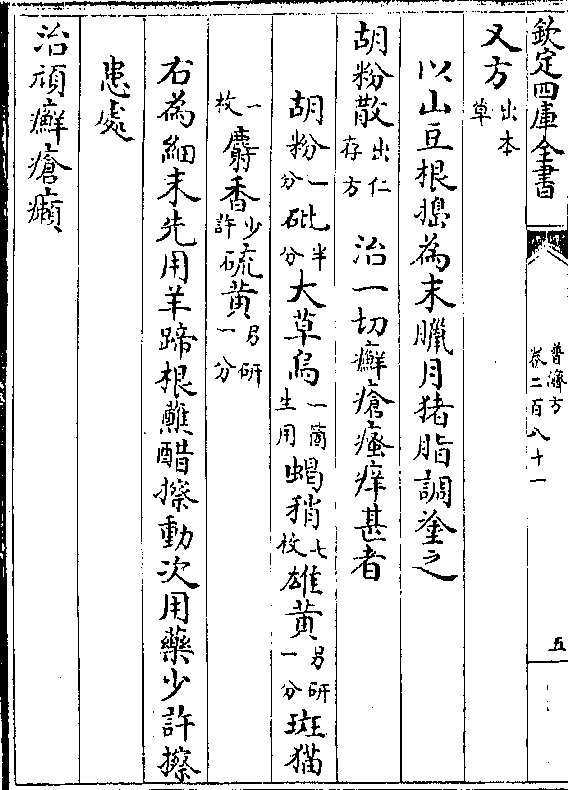 欽定四庫全書
普濟方
卷二百八十一
五
又方出本草
以山豆根搗為末臘月猪脂調塗之
胡粉散出仁存方 治一切癬瘡瘙痒甚者
胡粉一分 砒半分 大草烏一箇生用 蝎稍七枚 雄黃另研一分 斑猫
一枚 麝香少許 硫黃另研一分
右為細末先用羊蹄根蘸醋擦動次用藥少許擦
患處
治頑癬瘡癩